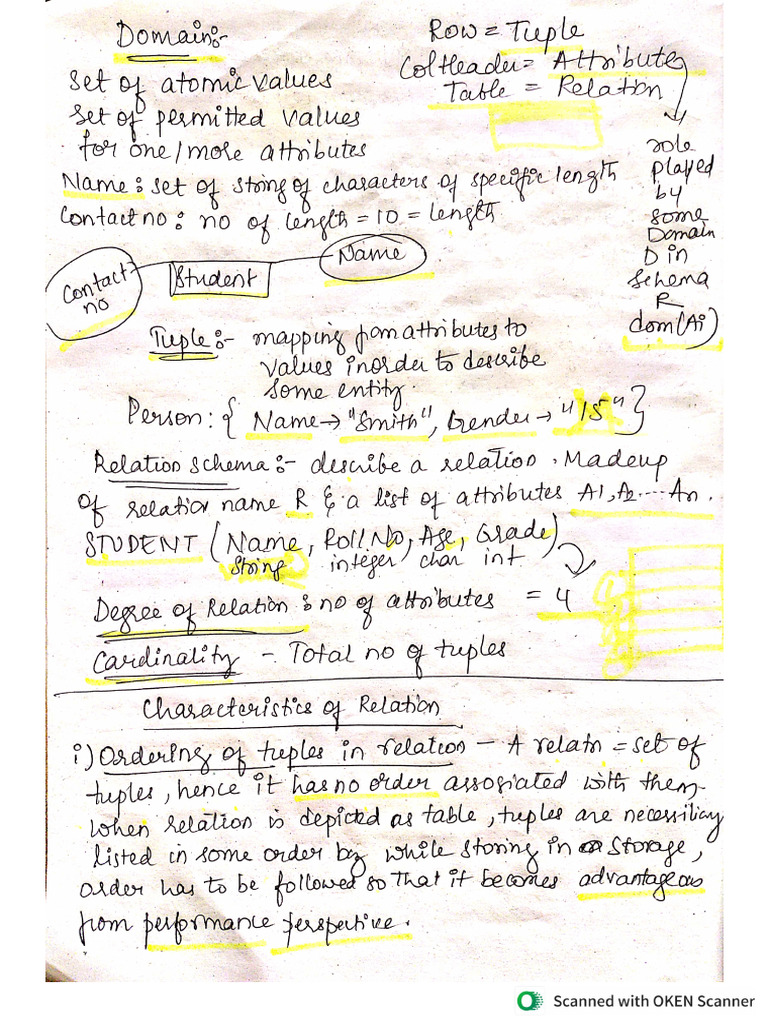 Domain:-
Set of atomic values
Set of permitted values
for one/more attributes
Row = Tuple
Col Header = Attributes
Table = Relation
role
played
by
some
Domain
D in
schema
R
dom(Ai)
Name: set of string of characters of specific length
Contact no: no of length = 10 = length
Contact
no
Student
Name
Tuple:- mapping from attributes to
values in order to describe
some entity.
Person: { Name → "Smith", Gender → "15" }
Relation schema:- describe a relation. Madeup
of relation name R & a list of attributes A1, A2.....An.
STUDENT (Name, Roll No, Age, Grade)
string integer char int
Degree of Relation: no of attributes = 4
Cardinality - Total no of tuples
Characteristics of Relation
i) Ordering of tuples in relation - A relatn = set of
tuples, hence it has no order associated with them
when relation is depicted as table, tuples are necessiliy
listed in some order by while storing in storage,
order has to be followed so that it becomes advantageous
from performance perspective.
Scanned with OKEN Scanner